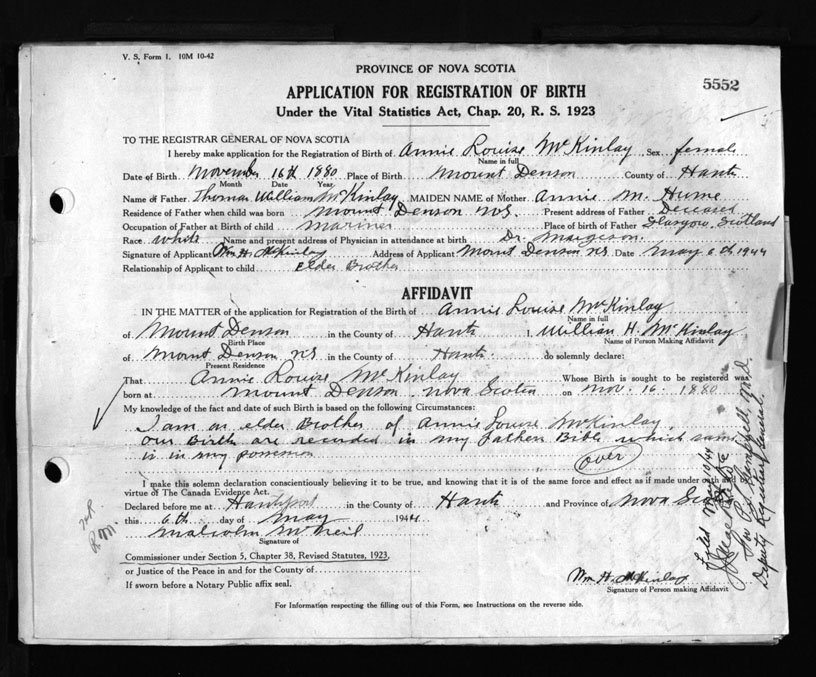 V. S. Form 1. 10M 10-42
PROVINCE OF NOVA SCOTIA
5552
APPLICATION FOR REGISTRATION OF BIRTH
Under the Vital Statistics Act, Chap. 20, R. S. 1923
TO THE REGISTRAR GENERAL OF NOVA SCOTIA
I hereby make application for the Registration of Birth of Annie Louise McKinlay Sex female
Name in full
Date of Birth November 16th 1880 Place of Birth Mount Denson County of Hants
Month Date Year
Name of Father Thomas William McKinlay MAIDEN NAME of Mother Annie M. Hume
Residence of Father when child was born Mount Denson N.S. Present address of Father Deceased
Occupation of Father at Birth of child Mariner Place of birth of Father Glasgow, Scotland
Race White Name and present address of Physician in attendance at birth Dr. Margeson
Signature of Applicant Wm H. McKinlay Address of Applicant Mount Denson N.S. Date May 6th 1944
Relationship of Applicant to child Elder Brother
AFFIDAVIT
IN THE MATTER of the application for Registration of the Birth of Annie Louise McKinlay
Name in full
of Mount Denson in the County of Hants I, William H. McKinlay
Birth Place Name of Person Making Affidavit
of Mount Denson N.S. in the County of Hants. do solemnly declare:
Present Residence
That Annie Louise McKinlay Whose Birth is sought to be registered was
born at Mount Denson Nova Scotia on Nov. 16. 1880
My knowledge of the fact and date of such Birth is based on the following Circumstances:
I am an elder Brother of Annie Louise McKinlay
our Births are recorded in my Fathers Bible which same
is in my possession
over
I make this solemn declaration conscientiously believing it to be true, and knowing that it is of the same force and effect as if made under oath and by
virtue of The Canada Evidence Act.
Declared before me at Hantsport in the County of Hants and Province of Nova Scotia
this 6th day of May 1944
Malcolm McNeil
Signature of
Commissioner under Section 5, Chapter 38, Revised Statutes, 1923,
or Justice of the Peace in and for the County of
If sworn before a Notary Public affix seal.
Wm H. McKinlay
Signature of Person making Affidavit
For Information respecting the filling out of this Form, see Instructions on the reverse side.
R.M.
Filed
Deputy Registrar General.